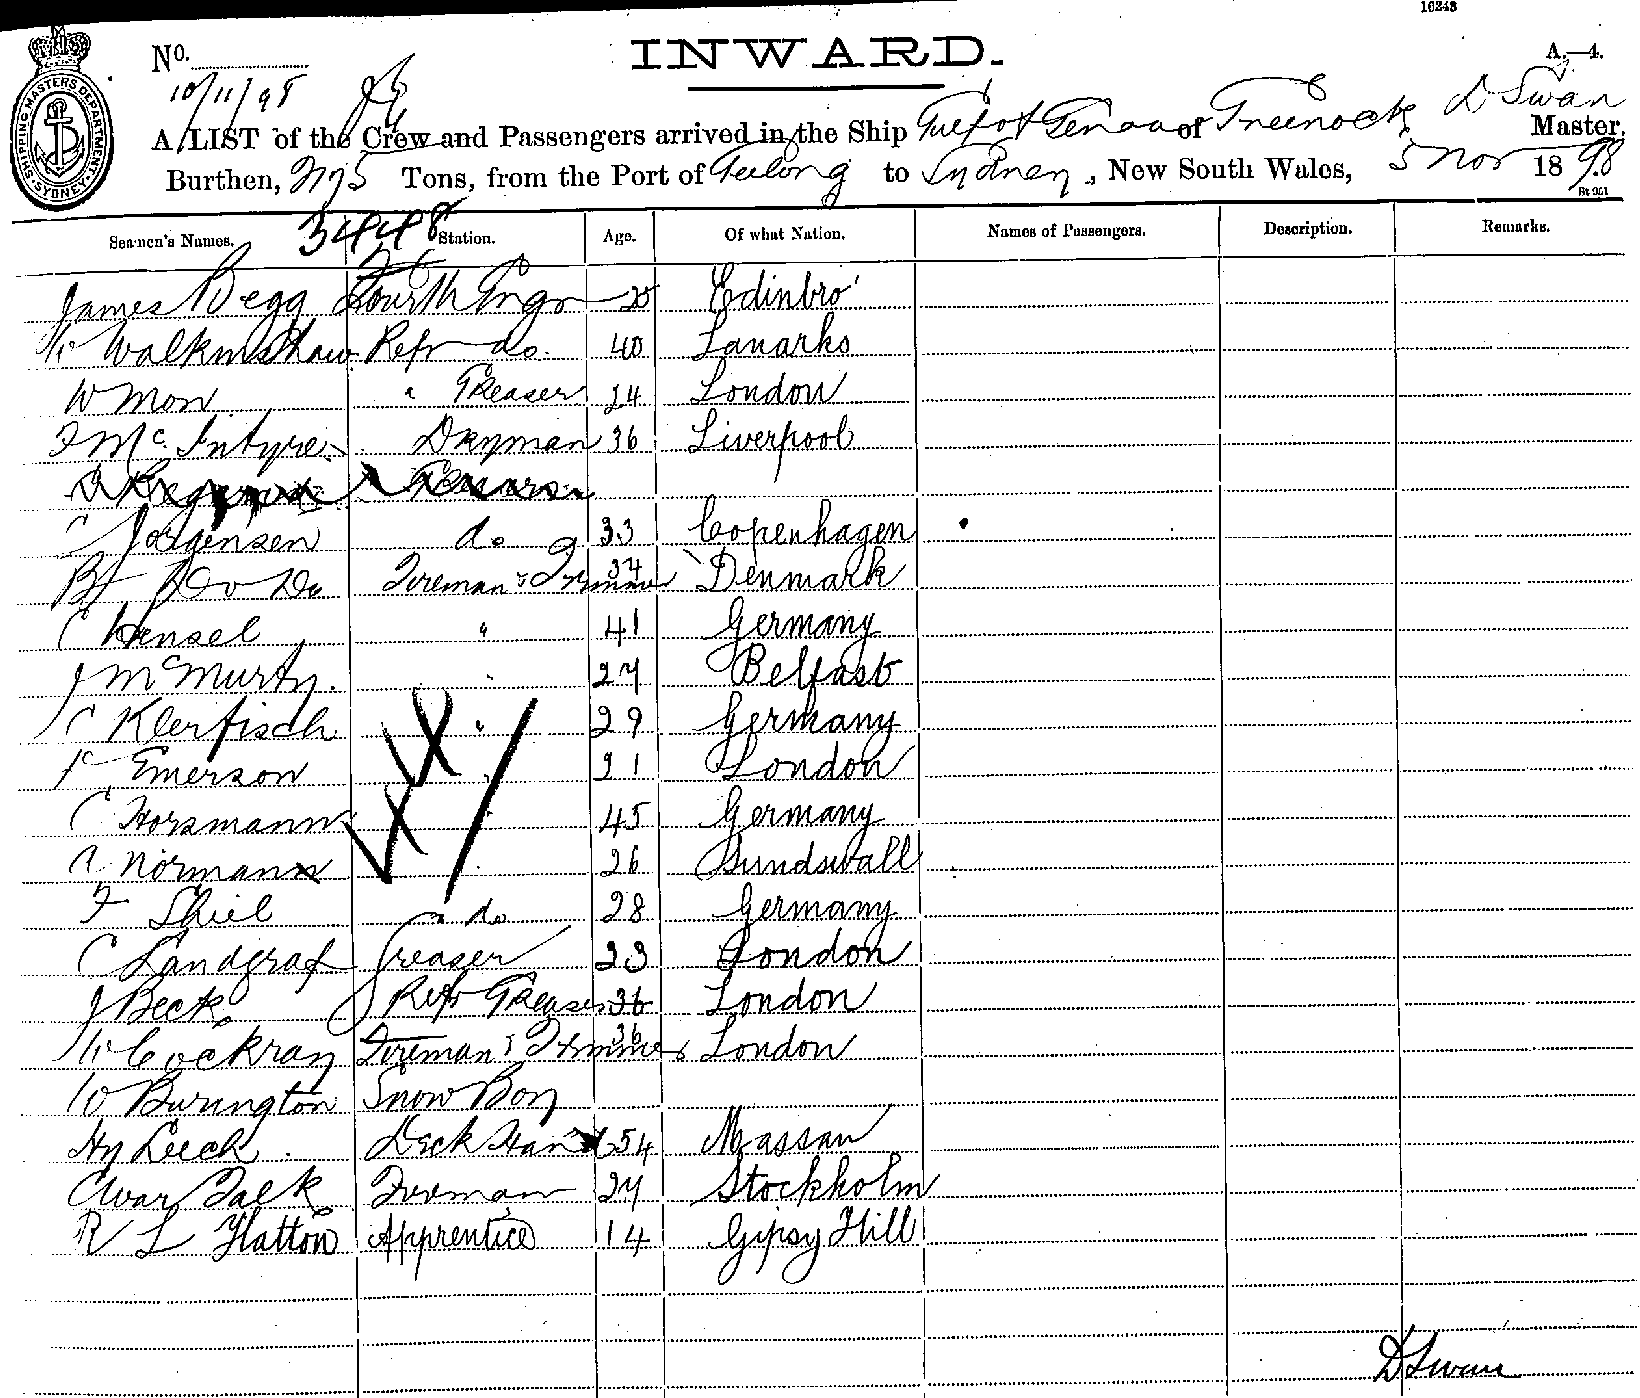 16243
INWARD.
A.—4.
No.
10/11/98
SHIPPING MASTERS DEPARTMENT. SYDNEY
D Swan
A LIST of the Crew and Passengers arrived in the Ship Gulf of Genoa of Greenock, Master,
Burthen, Tons, from the Port of Geelong to Sydney, New South Wales, 5 Nov 1898
3448
Seamen's Names. Station. Age. Of what Nation. Names of Passengers. Description. Remarks.
James Begg Fourth Engr 25 Edinbro'
W Walkinshaw Refr do. 40 Lanarks
W Mon " Greaser 24 London
F McIntyre Dkyman 36 Liverpool
C Jorgensen do 33 Copenhagen
Fireman & Trimmer 34 Denmark
C Hensel " 41 Germany
J McMurty. " 27 Belfast
C Klerfisch " 29 Germany
F Emerson " 21 London
C Horsmann " 45 Germany
A Normann 26 Sundswall
F Shiel do 28 Germany
C Landgraf Greaser 23 London
J Beck Refr Greaser 36 London
W Cockray Fireman & Trimmer 36 London
W Burington Snow Boy
Hy Leech Deck Hand 54 Massau
Falk Fireman 27 Stockholm
R L Hatton Apprentice 14 Gipsy Hill
D Swan